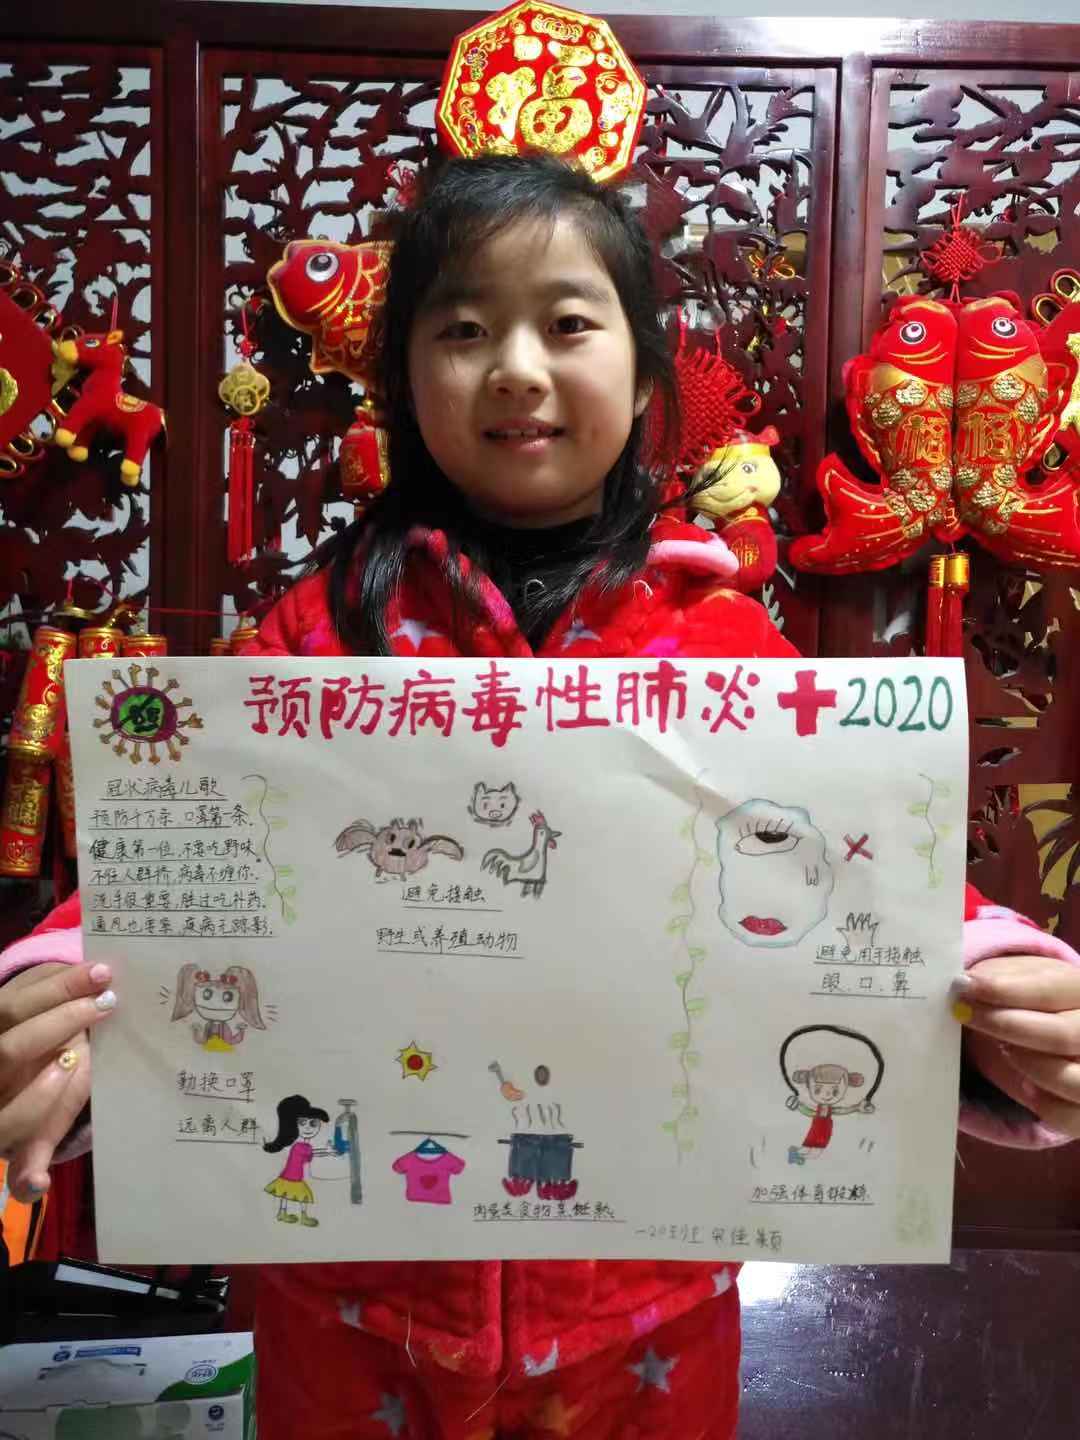 福
福
福
福
预防病毒性肺炎 2020
冠状病毒儿歌
预防千万条,口罩第一条.
健康第一位,不要吃野味。
不往人群挤,病毒不缠你.
洗手很重要,胜过吃补药.
通风也要紧,疾病无踪影.
避免接触
野生或养殖动物
避免用手接触
眼、口、鼻
勤换口罩
远离人群
肉蛋类食物煮熟
加强体育锻炼
佳颖